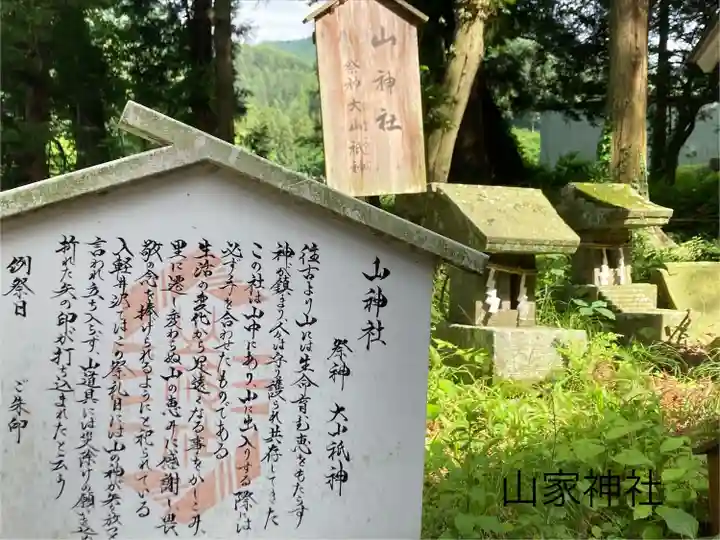 山神社
祭神 大山祇神
山神社
祭神 大山祇神
往古より山には生命育む恵をもたらす
神が鎮まり人は守護され共存してきた
この社は山中にあり山に出入りする際には
必ず手を合わせたものである
生活の変化から足遠くなる事をかしこみ
里に遷し変わらぬ山の恵みに感謝し畏
敬の念を捧げられるようにと祀られている
入軽井沢ではこの祭礼日には山の神が矢を放つ
言われ立ち入らず山道具には災除けの願
折れた矢の印が打ち込まれたと云う
例祭日
ご朱印
山家神社